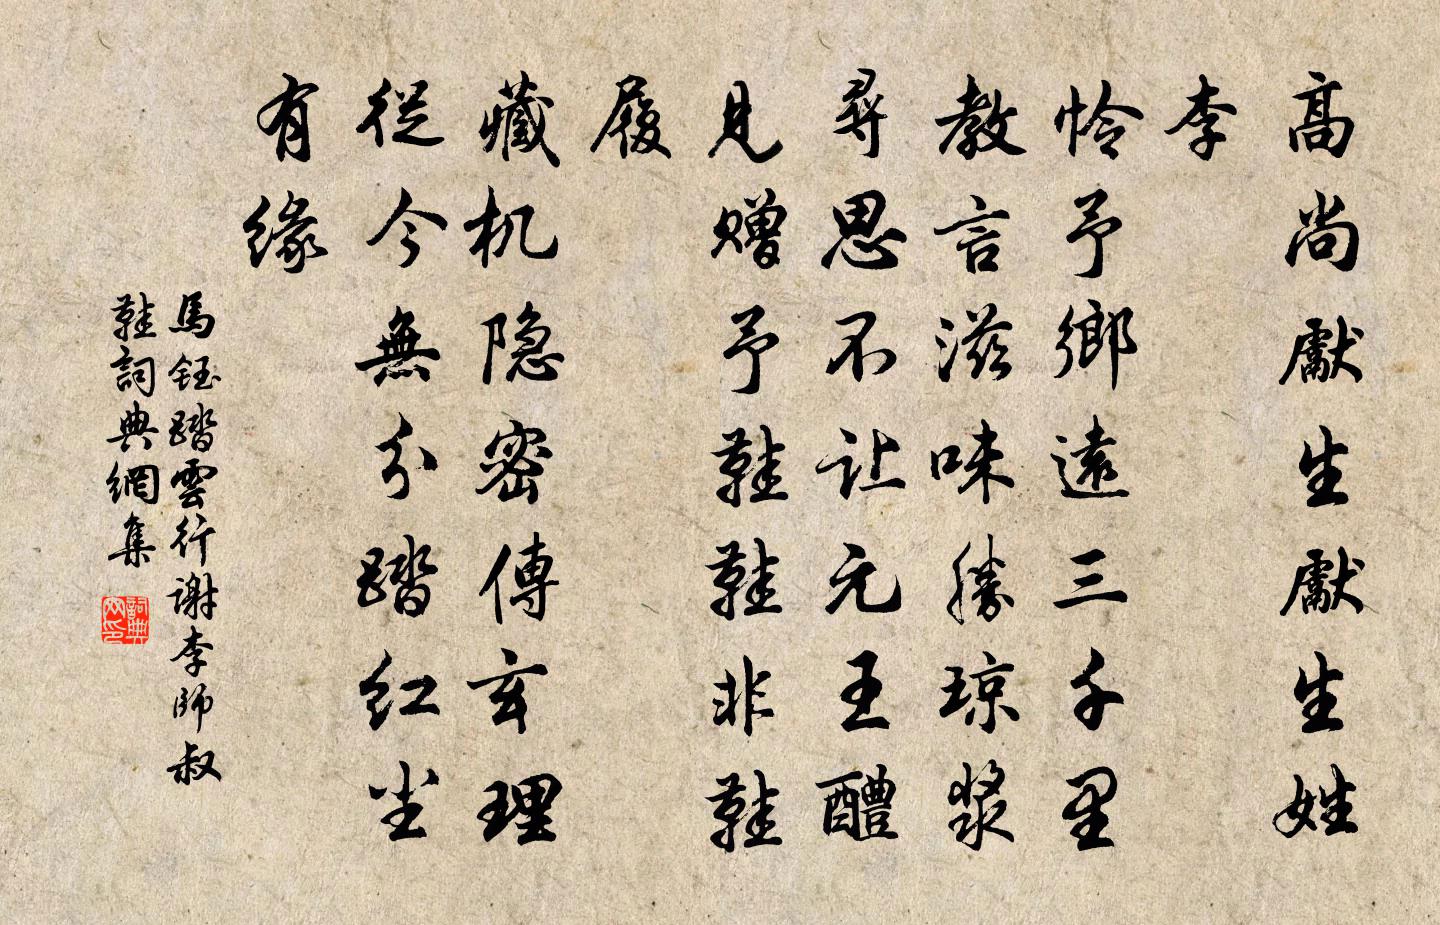 高尚獻生獻生姓
李
怜予鄉遠三千里
教言滋味勝琼漿
尋思不让元王醴
見赠予鞋鞋非鞋
履
藏机隐密傳玄理
從今無分踏红尘
有缘
馬钰踏雲行谢李師叔
鞋詞典網集
詞典
网印